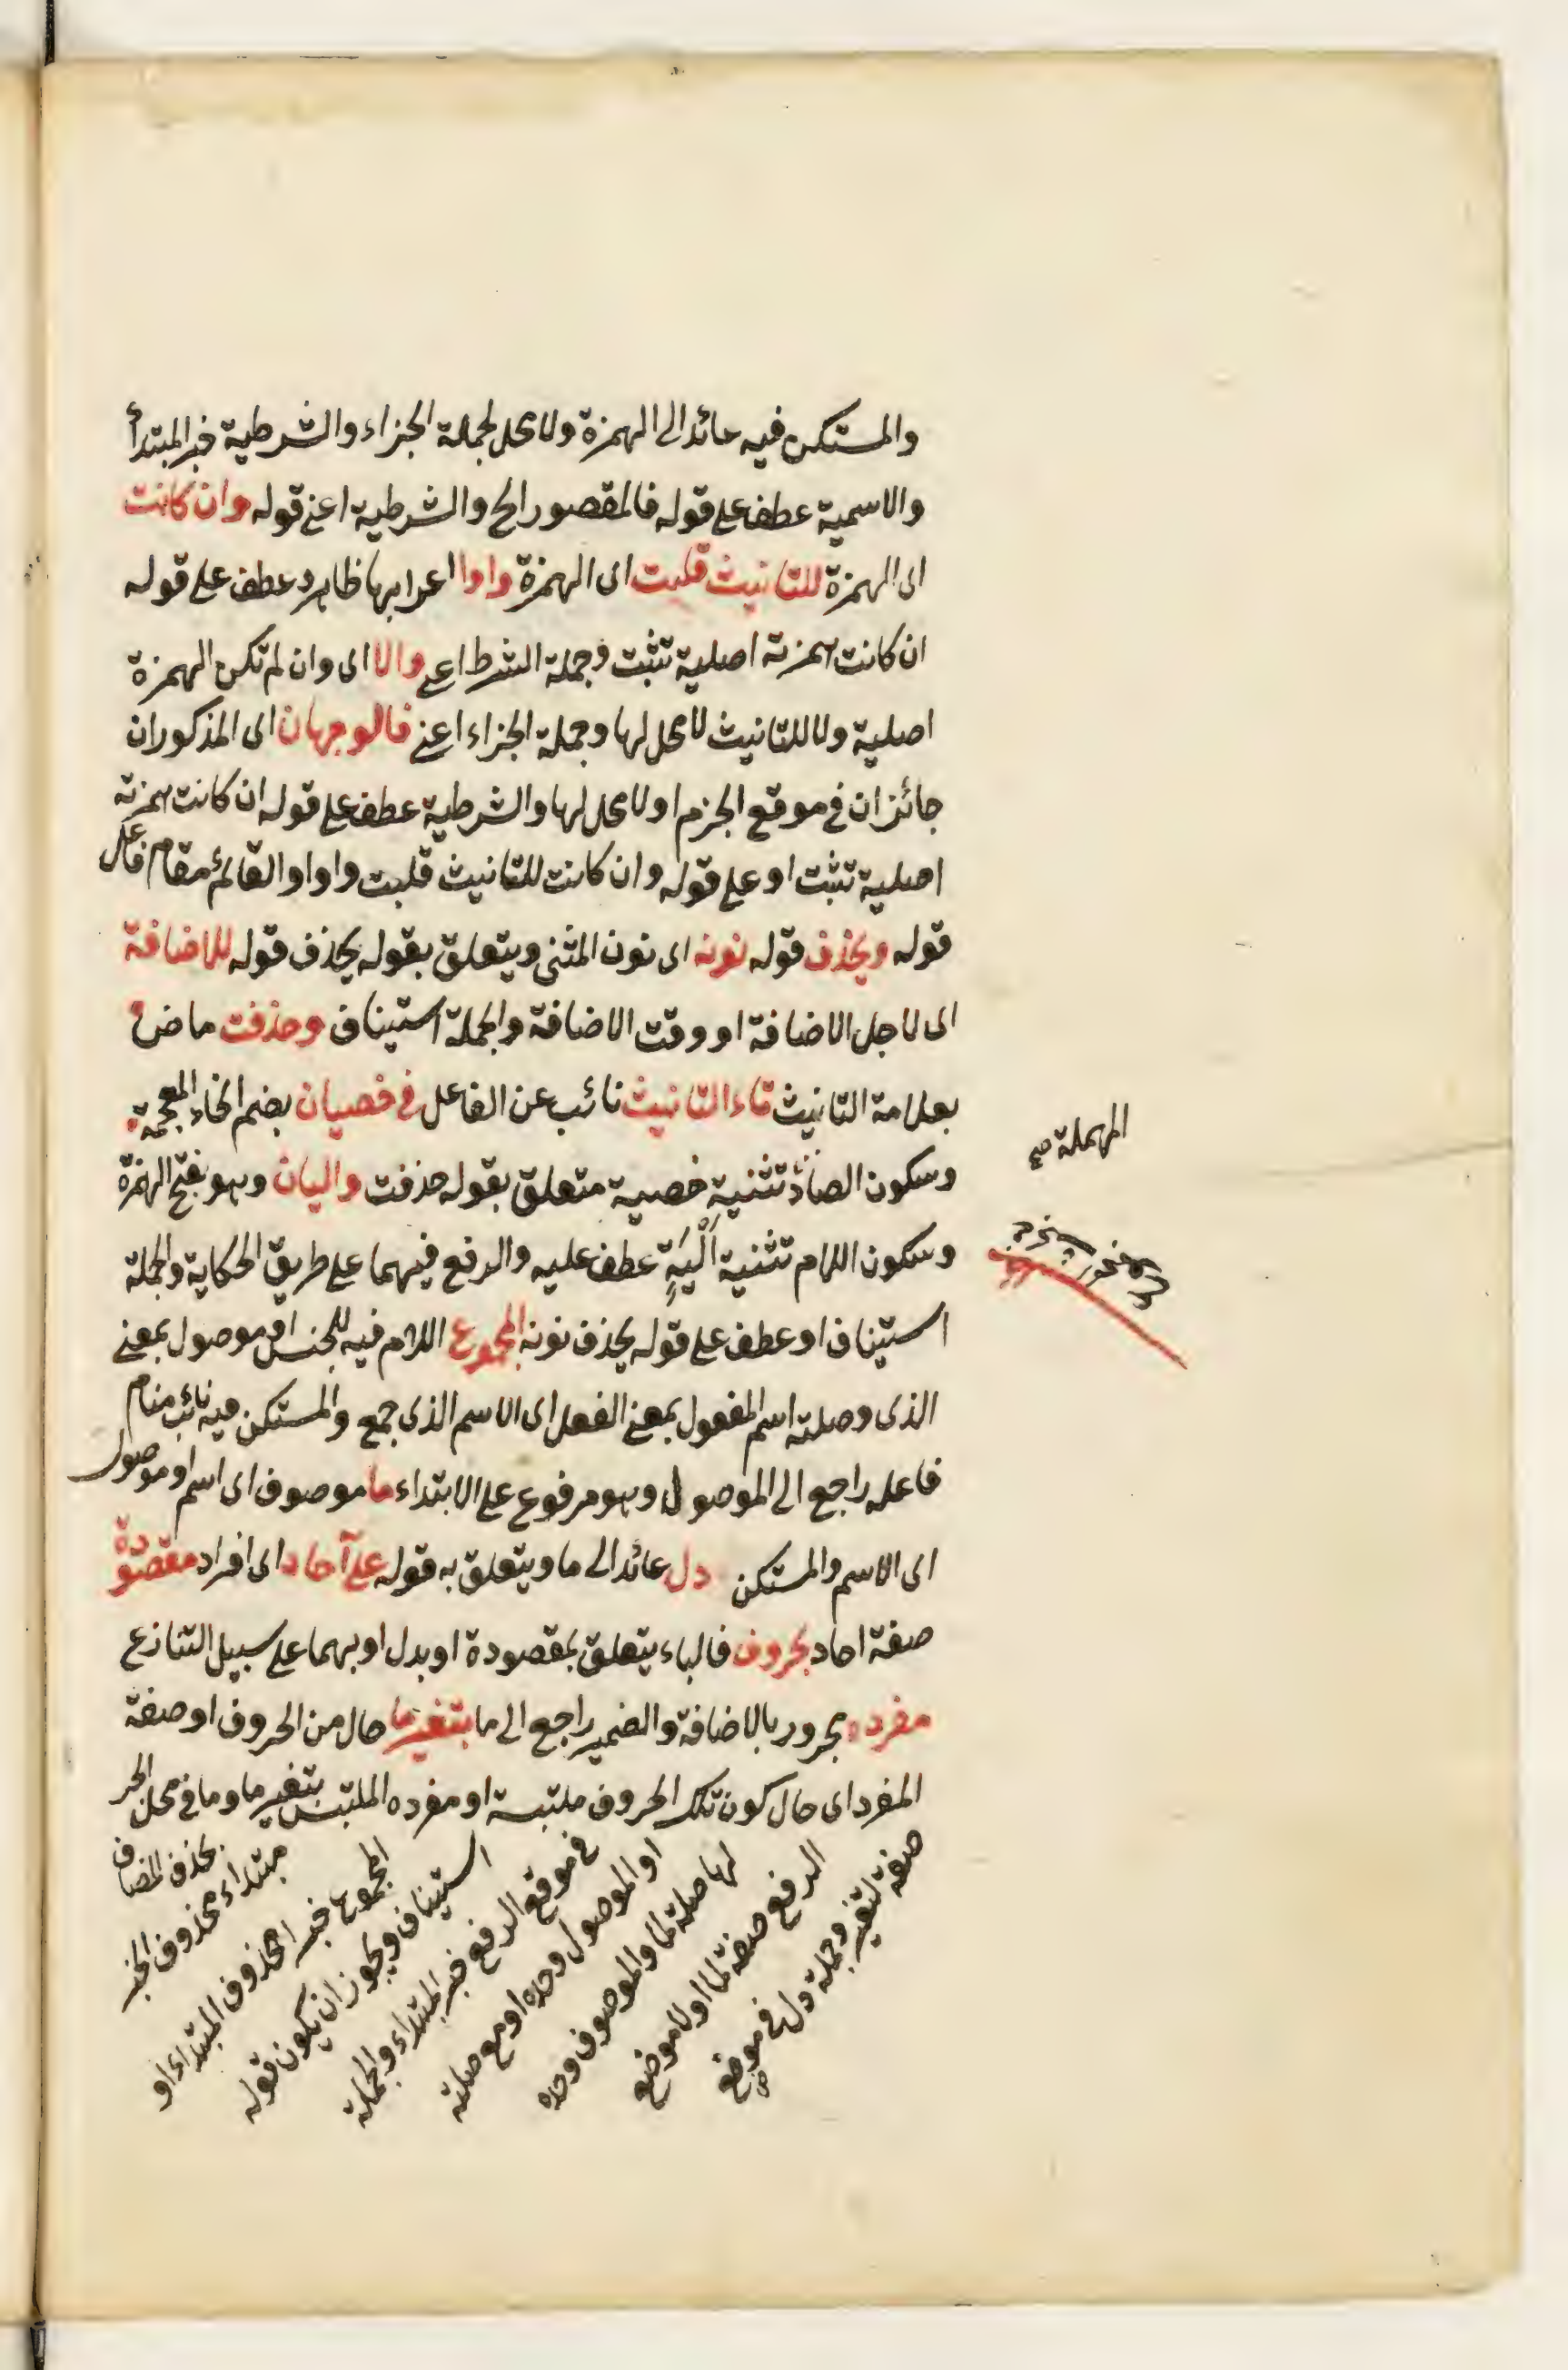 والمستكن فيه عائد الى الهمزة ولا محل لجملة الجزاء والشرطية خبر المبتدأ
والاسمية عطف على قوله فالمقصور الخ والشرطية اعنى قوله وان كانت
اى الهمزة للتانيث قلبت اى الهمزة واوا اعرابها ظاهر وعطف على قوله
ان كانت همزته اصلية تثبت وجملة الشرط اعنى والا اى وان لم تكن الهمزة
اصلية ولا للتانيث لا محل لها وجملة الجزاء اعنى فالوجهان اى المذكوران
جائزان فى موقع الجزم او لا محل لها والشرطية عطف على قوله ان كانت همزته
اصلية تثبت او على قوله وان كانت للتانيث قلبت واوا والقائم مقام فاعل
قوله ويحذف قوله نونه اى نون المثنى ويتعلق بقوله يحذف قوله للاضافة
اى لاجل الاضافة او وقت الاضافة والجملة استيناف وحذفت ماض
بعلامة التانيث تاء التانيث نائب عن الفاعل فى خصيان بضم الخاء المعجمة
وسكون الصاد تثنية خصية متعلق بقوله حذفت واليان وهو بفتح الهمزة
المهملة صح
وسكون اللام تثنية اَلْيَةٍ عطف عليه والرفع فيهما على طريق الحكاية والجملة
استيناف او عطف على قوله يحذف نونه المجموع اللام فيه للجنس او موصول بمعنى
الذى وصلته اسم المفعول بمعنى الفعل اى الاسم الذى جمع والمستكن فيه نائب مناب
فاعله راجع الى الموصول وهو مرفوع على الابتداء ما موصوف اى اسم او موصول
اى الاسم والمستكن دل عائد الى ما ويتعلق به قوله على آحاد اى افراد مقصودة
صفة احاد بحروف فالباء يتعلق بمقصودة او بدل او بهما على سبيل التنازع
مفرده مجرور بالاضافة والضمير راجع الى ما بتغير ما حال من الحروف او صفة
المفرد اى حال كون تلك الحروف ملتبسة او مفرده الملتبس بتغير ما وما فى محل الجر
صفة لتغير وجملة دل فى موضع
الرفع صفة لما او لا موضع
لها صلة لما والموصوف وحده
او الموصول وحده او مع صلته
فى موقع الرفع خبر المبتداء والجملة
استيناف ويجوز ان يكون قوله
المجموع خبر المحذوف المبتداء او
مبتداء محذوف الخبر
بحذف المضاف